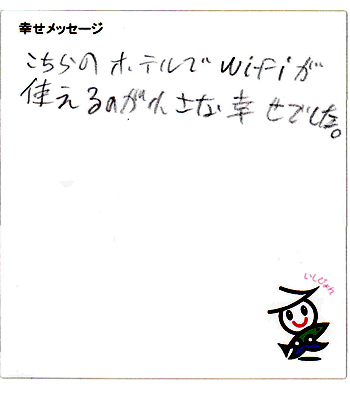 幸せメッセージ
こちらのホテルでwifiが
使えるのが小さな幸せでした。
いしぴょん